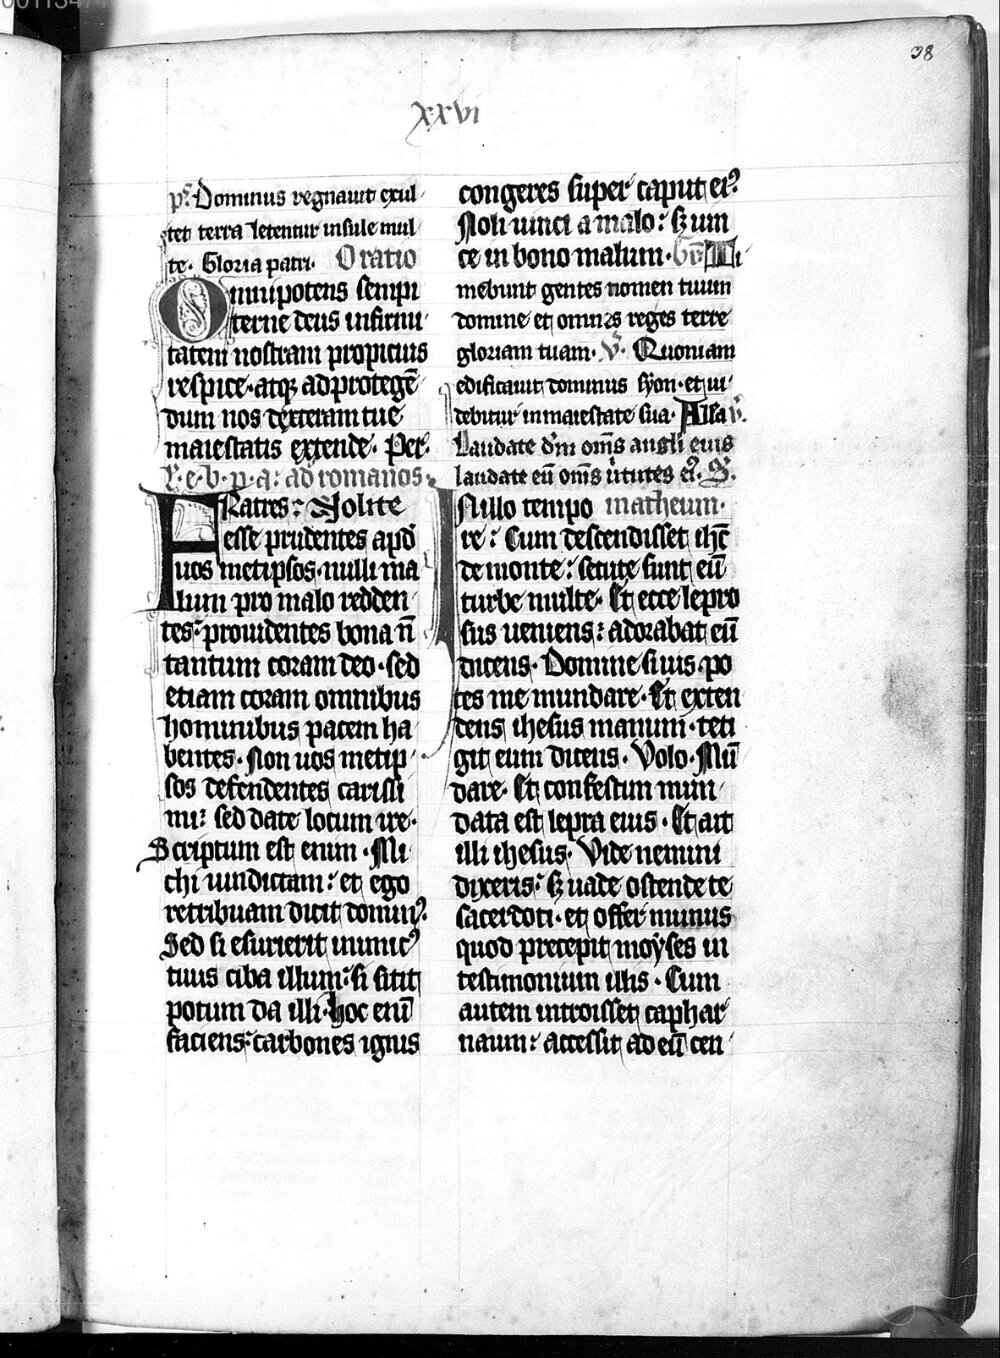 38
xxvi
ps. Dominus regnauit exul
tet terra letentur insule mul
te. Gloria patri. Oratio
Omnipotens sempi
terne deus infirmi
tatem nostram propicius
respice. atqꝫ ad protegē
dum nos dexteram tue
maiestatis extende. Per.
l. e. b. p. a. ad romanos.
FRatres: Nolite
esse prudentes apđ
uos metipsos. nulli ma
lum pro malo redden
tes: prouidentes bona n̄
tantum coram deo. sed
etiam coram omnibus
hominibus pacem ha
bentes. Non uos metip
sos defendentes carissi
mi: sed date locum ire.
Scriptum est enim. Mi
chi uindictam: et ego
retribuam dicit dominꝰ.
Sed si esurierit inimicꝰ
tuus ciba illum: si sitit
potum da illi. hoc enī
faciens: carbones ignis
congeres super caput eiꝰ
Noli uinci a malo: sꝫ uin
ce in bono malum. Gr̄. Ti
mebunt gentes nomen tuum
domine et omnes reges terre
gloriam tuam. V. Quoniam
edificauit dominus syon. et ui
debitur in maiestate sua. Alla v̄.
Laudate dm̄ om̄s angli eius
laudate eū om̄s ṽtutes eiꝰ. S.
INillo tempo matheum.
re: Cum descendisset ihc̄
de monte: secute sunt eū
turbe multe. Et ecce lepro
sus ueniens: adorabat eū
dicens. Domine si uis. po
tes me mundare. Et exten
dens ihesus manum. teti
git eum dicens. Volo. Mū
dare. Et confestim mun
data est lepra eius. Et ait
illi ihesus. Vide nemini
dixeris: sꝫ uade ostende te
sacerdoti. et offer munus
quod precepit moyses in
testimonium illis. Cum
autem introisset caphar
naum: accessit ad eū cen